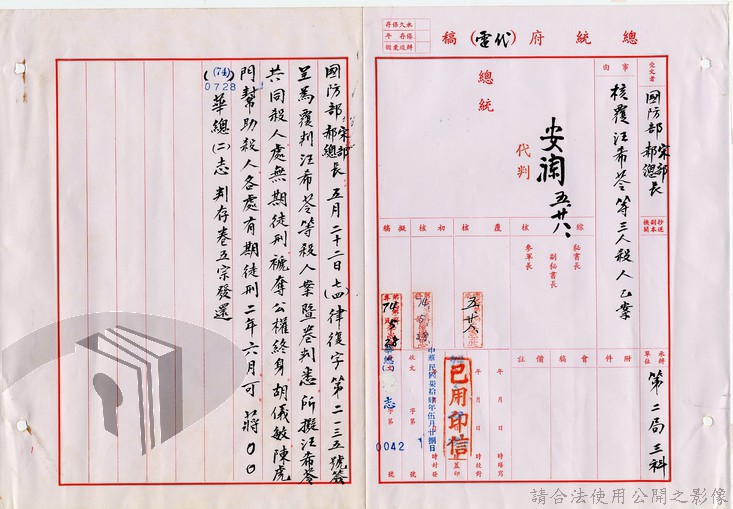 總統府(代電)稿
永久保存
保存 年
辦後彙銷
受文者
國防部 宋部長 郝總長
事由
核覆汪希苓等三人殺人乙案
抄送副本機關
總統
安瀾 五.廿八.
代判
綜核
秘書長
副秘書長
參軍長
覆核
五.廿八.
初核
擬稿
承辦單位
第二局三科
附件
會稿
備註
年 月 日 時繕寫
年 月 日 時校對
已用印信
蓋印
中華民國柒拾肆年伍月廿捌日 時封發
收文 字第 號
華總(二)志 字第 號
0042
國防部 宋部長 郝總長 五月二十二日(七四)律復字第二一三五號簽
呈為覆判汪希苓等殺人案暨卷判悉所擬汪希苓
共同殺人處無期徒刑褫奪公權終身胡儀敏陳虎
門幫助殺人各處有期徒刑二年六月可蔣〇〇
(74)
0728
華總(二)志 判存卷五宗發還
請合法使用公開之影像